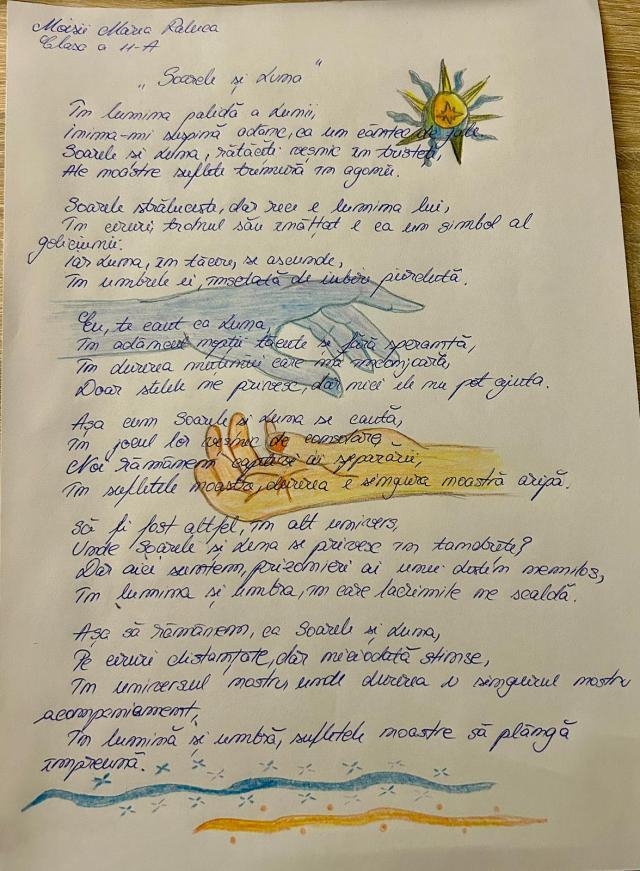 Moisii Maria Raluca
Clasa a 11-A
„Soarele și Luna”
În lumina palidă a Lunii,
Inima-mi suspină adânc, ca un cântec de jale
Soarele și Luna, rătăciți veșnic în tristeți,
Ale noastre suflete tremură în agonii.
Soarele strălucește, dar rece e lumina lui,
În ceruri, tronul său înălțat e ca un simbol al
goliciunii.
Iar Luna, în tăcere, se ascunde,
În umbrele ei, însetată de iubire pierdută.
Eu, te caut ca Luna
În adâncuri nopții tăcute și fără speranță,
În durerea mulțimii care mă înconjoară,
Doar stelele ne privesc, dar nici ele nu pot ajuta.
Așa cum Soarele și Luna se caută,
În jocul lor veșnic de consolare,
Noi rămânem captivi ai separării,
În sufletele noastre, durerea e singura noastră aripă.
Să fi fost altfel, în alt univers,
Unde Soarele și Luna se privesc în
Dar aici suntem, prizonieri ai unui destin nemilos,
În lumina și umbra, în care lacrimile ne scaldă.
Așa să rămânem, ca Soarele și Luna,
Pe ceruri distanțate, dar niciodată stinse,
În universul nostru, unde durerea e singurul nostru
acompaniament,
În lumină și umbră, sufletele noastre să plângă
împreună.